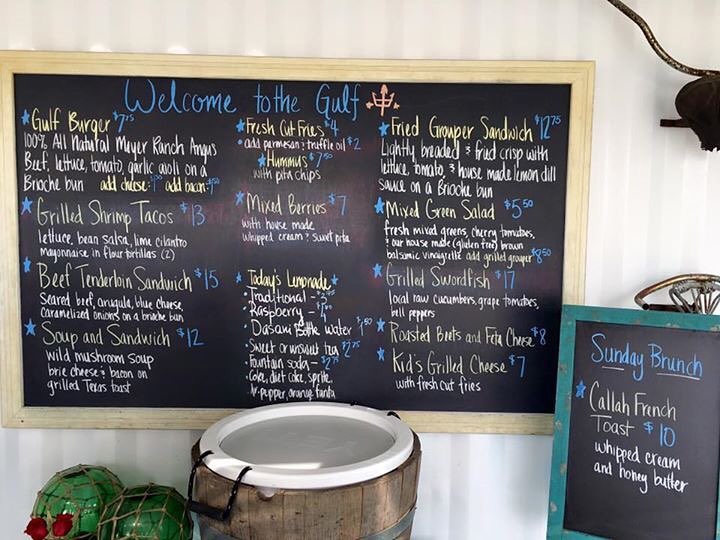 Welcome to the Gulf
Gulf Burger $7.75
100% All Natural Meyer Ranch Angus
Beef, lettuce, tomato, garlic aioli on a
Brioche bun add cheese: add bacon:
Grilled Shrimp Tacos $13
lettuce, bean salsa, lime cilantro
mayonnaise in flour tortillas (2)
Beef Tenderloin Sandwich $15
Seared beef, arugula, blue cheese
caramelized onions on a brioche bun
Soup and Sandwich $12
wild mushroom soup
brie cheese & bacon on
grilled Texas toast
Fresh Cut Fries $4
add parmesan & truffle oil $2
Hummus $7.50
with pita chips
Mixed Berries $7
with house made
whipped cream & sweet pita
Today's Lemonade
Traditional -
Raspberry -
Dasani Bottle Water 1.50
Sweet or unsweet tea $2.75
Fountain soda - $2.75
Coke, diet coke, sprite
dr. pepper, orange fanta
Fried Grouper Sandwich $12.75
Lightly breaded & fried crisp with
lettuce, tomato, & house made lemon dill
sauce on a Brioche bun
Mixed Green Salad $5.50
fresh mixed greens, cherry tomatoes,
& our house made (gluten free) brown
balsamic vinaigrette add grilled grouper $8.50
Grilled Swordfish $17
local raw cucumbers, grape tomatoes,
bell peppers
Roasted Beets and Feta Cheese $8
Kid's Grilled Cheese $7
with fresh cut fries
Sunday Brunch
Callah French
Toast $10
whipped cream
and honey butter